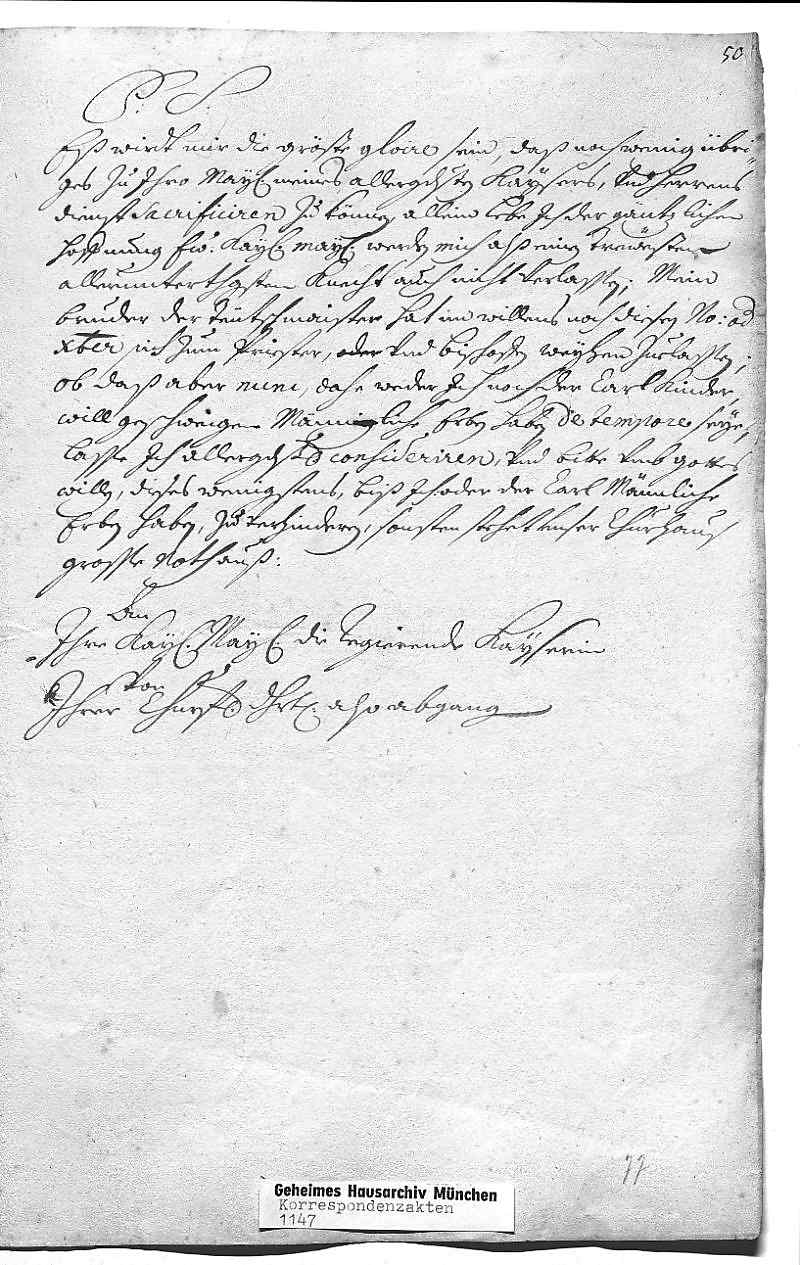 50
P. S.
Eß wirdt mir die gröste gloire sein, daß noch wenig übri-
ges zu Ihro Mayl. meines allergdsten Kaysers, vnd Herrens
dienst Sacrificiren zu können, allein lebe Ich der gäntzlichen
hoffnung Ew: Kayl. mayl. werden mich alß einen treüesten
allerunterthgsten Knecht auch nicht verlassen; Mein
bruder der Teütschmaister hat im willens noch diesen No: od
xber sich zum Priester, oder vnd bischoffen weyhen zu lassen;
ob daß aber nunc, da weder Ich noch der Carl Kinder,
will geschweigen Männliche Erben haben de tempore seye,
lasse Ich allergdst consideriren, vnd bitte vmb gottes
willen, dieses wenigstens, biß Ich oder der Carl Männliche
Erben haben, zu verhinderen, sonsten stehet vnser Churhaus
grosse Noth auß:
An
Ihre Kayl. Mayl. die regierende Kayserin
von
Ihrer Churfl. Drtl. also abgang
77
Geheimes Hausarchiv München
Korrespondenzakten
1147